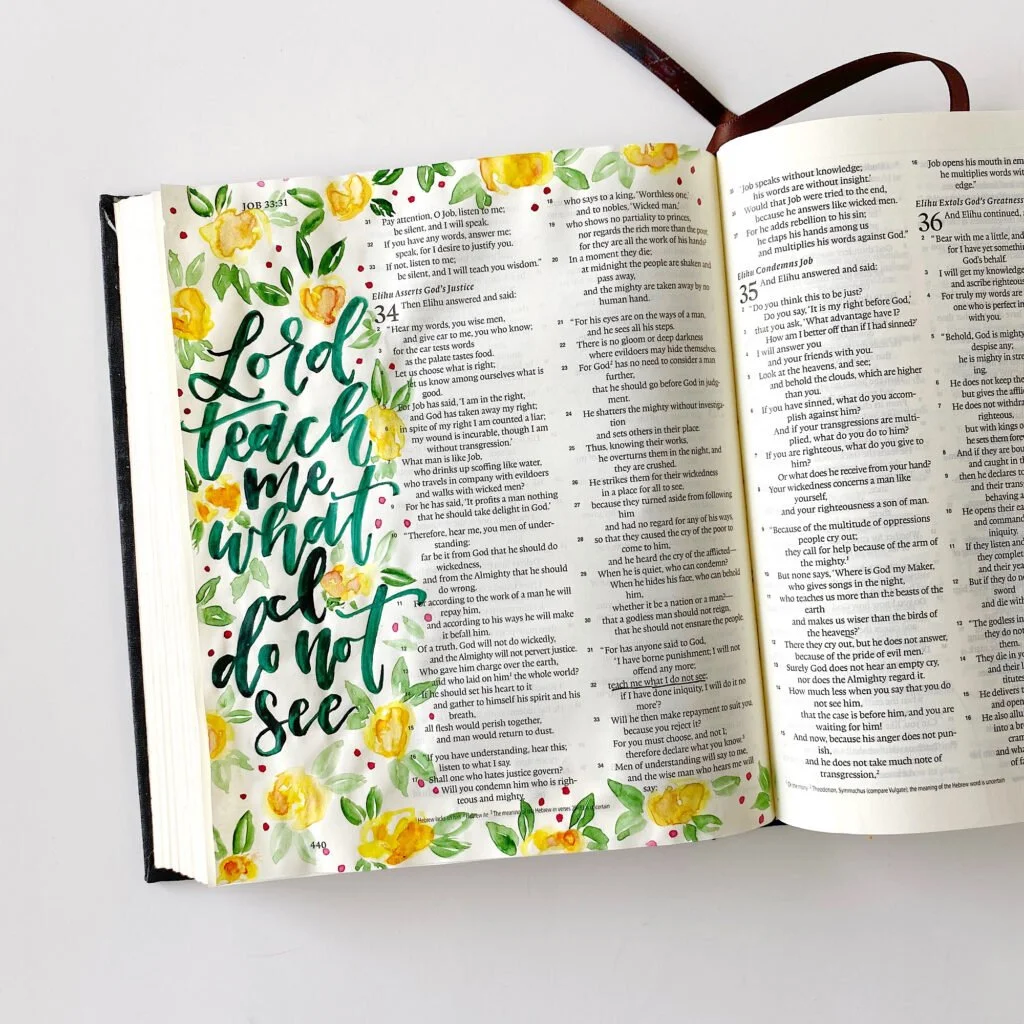 JOB 33:31
Lord
teach
me
what
I
do not
see
31 Pay attention, O Job, listen to me;
be silent, and I will speak.
32 If you have any words, answer me;
speak, for I desire to justify you.
33 If not, listen to me;
be silent, and I will teach you wisdom."
Elihu Asserts God's Justice
34 Then Elihu answered and said:
2 "Hear my words, you wise men,
and give ear to me, you who know;
3 for the ear tests words
as the palate tastes food.
4 Let us choose what is right;
let us know among ourselves what is
good.
5 For Job has said, 'I am in the right,
and God has taken away my right;
6 in spite of my right I am counted a liar;
my wound is incurable, though I am
without transgression.'
7 What man is like Job,
who drinks up scoffing like water,
8 who travels in company with evildoers
and walks with wicked men?
9 For he has said, 'It profits a man nothing
that he should take delight in God.'
10 "Therefore, hear me, you men of under-
standing:
far be it from God that he should do
wickedness,
and from the Almighty that he should
do wrong.
11 For according to the work of a man he will
repay him,
and according to his ways he will make
it befall him.
12 Of a truth, God will not do wickedly,
and the Almighty will not pervert justice.
13 Who gave him charge over the earth,
and who laid on him¹ the whole world?
14 If he should set his heart to it
and gather to himself his spirit and his
breath,
15 all flesh would perish together,
and man would return to dust.
16 "If you have understanding, hear this;
listen to what I say.
17 Shall one who hates justice govern?
Will you condemn him who is righ-
teous and mighty,
18 who says to a king, 'Worthless one,'
and to nobles, 'Wicked man,'
19 who shows no partiality to princes,
nor regards the rich more than the poor,
for they are all the work of his hands?
20 In a moment they die;
at midnight the people are shaken and
pass away,
and the mighty are taken away by no
human hand.
21 "For his eyes are on the ways of a man,
and he sees all his steps.
22 There is no gloom or deep darkness
where evildoers may hide themselves.
23 For God² has no need to consider a man
further,
that he should go before God in judg-
ment.
24 He shatters the mighty without investiga-
tion
and sets others in their place.
25 Thus, knowing their works,
he overturns them in the night, and
they are crushed.
26 He strikes them for their wickedness
in a place for all to see,
27 because they turned aside from following
him
and had no regard for any of his ways,
28 so that they caused the cry of the poor to
come to him,
and he heard the cry of the afflicted—
29 When he is quiet, who can condemn?
When he hides his face, who can behold
him,
whether it be a nation or a man?—
30 that a godless man should not reign,
that he should not ensnare the people.
31 "For has anyone said to God,
'I have borne punishment; I will not
offend any more;
32 teach me what I do not see;
if I have done iniquity, I will do it no
more'?
33 Will he then make repayment to suit you,
because you reject it?
For you must choose, and not I;
therefore declare what you know.³
34 Men of understanding will say to me,
and the wise man who hears me will
say:
440
35 'Job speaks without knowledge;
his words are without insight.'
36 Would that Job were tried to the end,
because he answers like wicked men.
37 For he adds rebellion to his sin;
he claps his hands among us
and multiplies his words against God."
Elihu Condemns Job
35 And Elihu answered and said:
2 "Do you think this to be just?
Do you say, 'It is my right before God,'
3 that you ask, 'What advantage have I?
How am I better off than if I had sinned?'
4 I will answer you
and your friends with you.
5 Look at the heavens, and see;
and behold the clouds, which are higher
than you.
6 If you have sinned, what do you accom-
plish against him?
And if your transgressions are multi-
plied, what do you do to him?
7 If you are righteous, what do you give to
him?
Or what does he receive from your hand?
8 Your wickedness concerns a man like
yourself,
and your righteousness a son of man.
9 "Because of the multitude of oppressions
people cry out;
they call for help because of the arm of
the mighty.¹
10 But none says, 'Where is God my Maker,
who gives songs in the night,
11 who teaches us more than the beasts of the
earth
and makes us wiser than the birds of
the heavens?'
12 There they cry out, but he does not answer,
because of the pride of evil men.
13 Surely God does not hear an empty cry,
nor does the Almighty regard it.
14 How much less when you say that you do
not see him,
that the case is before him, and you are
waiting for him!
15 And now, because his anger does not pun-
ish,
and he does not take much note of
transgression,²
16 Job opens his mouth in em
he multiplies words wit
edge."
Elihu Extols God's Greatness
36 And Elihu continued,
2 "Bear with me a little, and
for I have yet something
God's behalf.
3 I will get my knowledge
and ascribe righteous
4 For truly my words are
one who is perfect in
with you.
5 "Behold, God is mighty
despise any;
he is mighty in stre
ing.
6 He does not keep the
but gives the afflic
7 He does not withdra
righteous,
but with kings o
he sets them fore
8 And if they are bou
and caught in th
9 then he declares to
and their trans
behaving a
10 He opens their ea
and comman
iniquity.
11 If they listen and
they complet
and their yea
12 But if they do no
sword
and die with
13 "The godless in
they do not
them.
14 They die in yo
and their li
titutes
15 He delivers t
and open
16 He also allu
into a br
cram
and wha
of fa